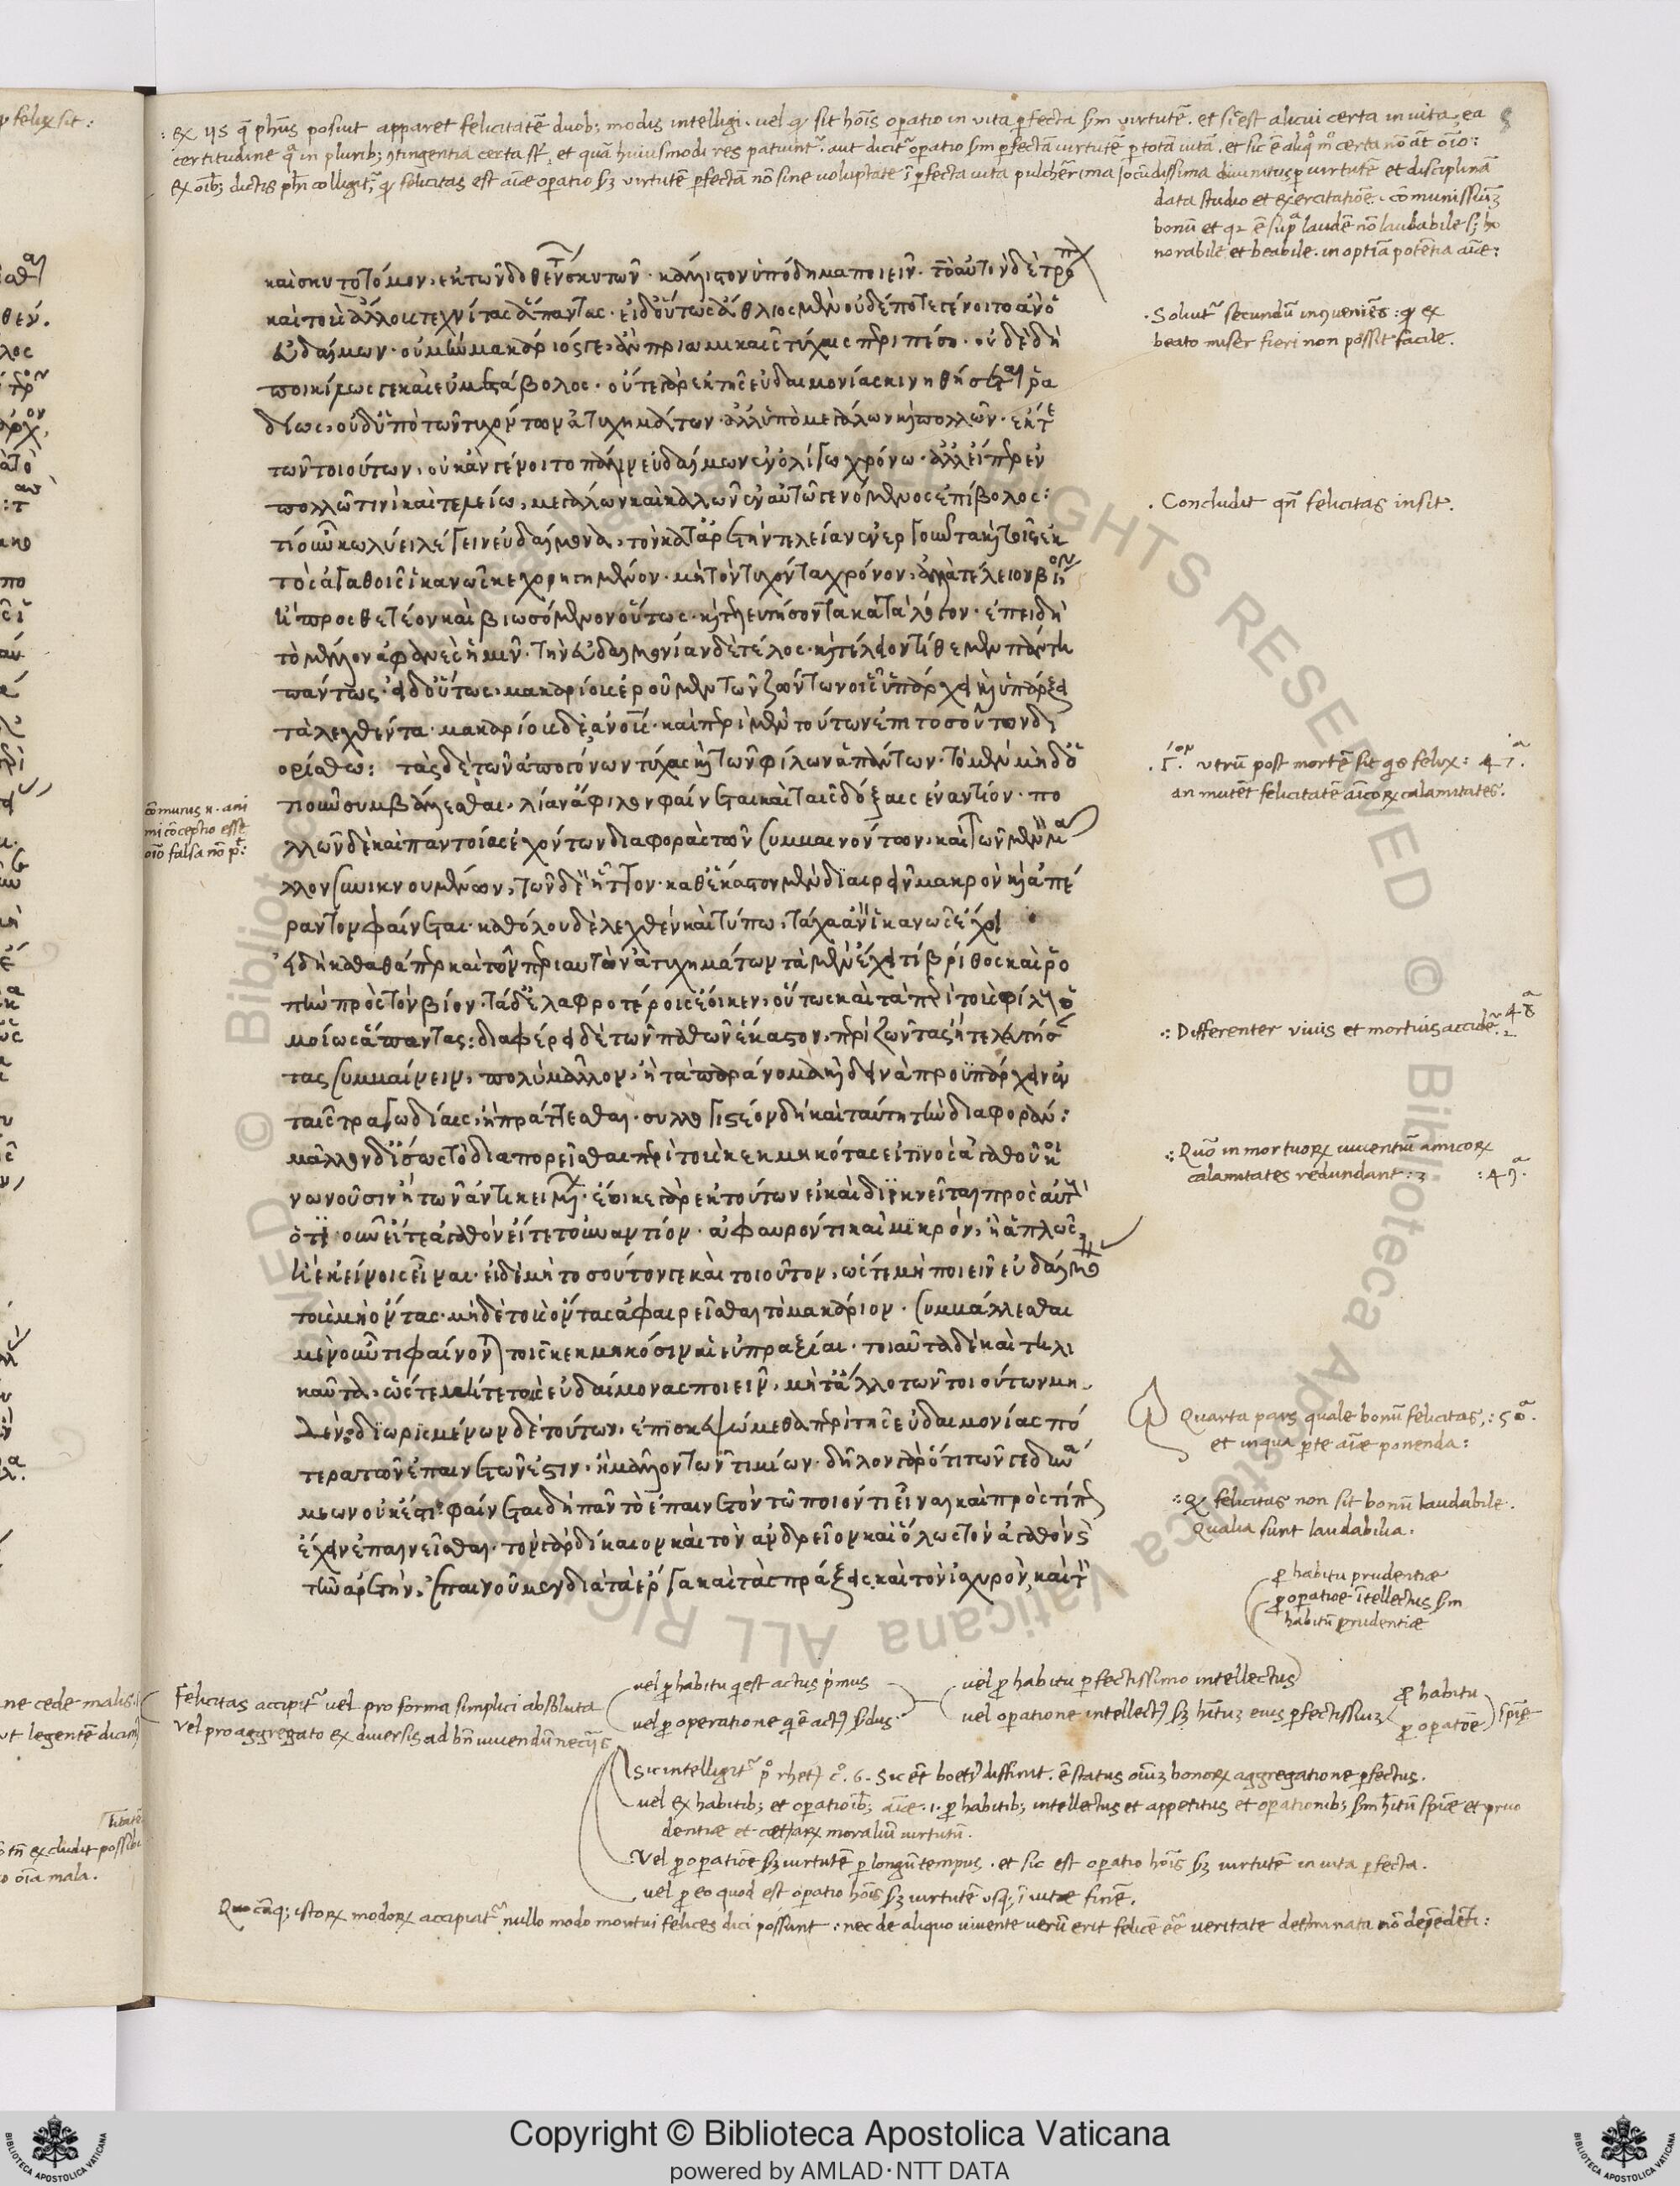 : ex iis q̃ ph̃us posuit apparet felicitatẽ duob; modis intelligi. vel q sit hoĩs oꝑatio in vita ꝑfecta ẜm virtutẽ. et sic est alicui certa in vita, ea
8
certitudine q̃ in plurib; ꝯtingentia certa st̃, et quã huiusmodi res patiunt᷑. aut dicit᷑ oꝑatio ẜm ꝑfectã uirtutẽ ꝑ totã uitã. et sic ẽ
ex oĩb; dictis ph̃i colligit᷑, q felicitas est aĩæ oꝑatio ẜꝫ virtutẽ ꝑfectã nõ sine uoluptate ĩ ꝑfecta uita pulcherrima iocũdissima diuinitus ꝑ uirtutẽ et disciplinã
data studio et exercitatiõe. cõmunissimũ
bonũ et ẽ supra laudẽ nõ laudabile sꝫ ho
norabile et beabile. in optĩa potẽtia aĩæ:
καὶ σκυτοτόμον, ἐκ τῶν δοθέντων σκυτῶν κάλλιστον ὑπόδημα ποιεῖν. τὸν αὐτὸν δὲ τρόπον
καὶ τοὺς ἄλλους τεχνίτας ἅπαντας. εἰ δ' οὕτως ἄθλιος μὲν οὐδέποτε γένοιτο ἂν ὁ
εὐδαίμων. οὐ μὴν μακάριός γε, ἂν πριαμικαῖς τύχαις περιπέσῃ. οὐδὲ δὴ
ποικίλος γε καὶ εὐμετάβολος. οὔτε γὰρ ἐκ τῆς εὐδαιμονίας κινηθήσεται ῥα
δίως, οὐδ' ὑπὸ τῶν τυχόντων ἀτυχημάτων. ἀλλ' ὑπὸ μεγάλων καὶ πολλῶν. ἔκ τε
τῶν τοιούτων, οὐκ ἂν γένοιτο πάλιν εὐδαίμων ἐν ὀλίγῳ χρόνῳ. ἀλλ' εἴπερ ἐν
πολλῷ τινὶ καὶ τελείῳ, μεγάλων καὶ καλῶν ἐν αὐτῷ γενόμενος ἐπήβολος:
τί οὖν κωλύει λέγειν εὐδαίμονα, τὸν κατ' ἀρετὴν τελείαν ἐνεργοῦντα καὶ τοῖς ἐκ
τὸς ἀγαθοῖς ἱκανῶς κεχορηγημένον. μὴ τὸν τυχόντα χρόνον, ἀλλὰ τέλειον βίον
ἢ προσθετέον καὶ βιωσόμενον οὕτως. καὶ τελευτήσοντα κατὰ λόγον. ἐπειδὴ
τὸ μέλλον ἀφανὲς ἡμῖν. τὴν εὐδαιμονίαν δὲ τέλος. καὶ τέλειον τίθεμεν πάντῃ
πάντως. εἰ δ' οὕτως, μακαρίους ἐροῦμεν τῶν ζώντων οἷς ὑπάρχει καὶ ὑπάρξει
τὰ λεχθέντα. μακαρίους δὲ ἀνους. καὶ περὶ μὲν τούτων ἐπὶ τοσοῦτον δι
ορίσθω: τὰς δὲ τῶν ἀπογόνων τύχας καὶ τῶν φίλων ἁπάντων. τὸ μὲν μηδο
τιοῦν συμβάλλεσθαι, λίαν ἄφιλον φαίνεται καὶ ταῖς δόξαις ἐναντίον. πο
λλῶν δὲ καὶ παντοίας ἐχόντων διαφορὰς τῶν συμβαινόντων, καὶ τῶν μὲν μᾶ
λλον συνικνουμένων, τῶν δὲ ἧττον. καθ' ἕκαστον μὲν διαιρεῖν μακρὸν καὶ ἀπέ
ραντον φαίνεται. καθόλου δὲ λεχθὲν καὶ τύπῳ, τάχα ἂν ἱκανῶς ἔχοι
εἰ δὴ καθάπερ καὶ τῶν περὶ αὑτὸν ἀτυχημάτων τὰ μὲν ἔχει τι βρίθος καὶ ῥο
πὴν πρὸς τὸν βίον. τὰ δ' ἐλαφροτέροις ἔοικεν, οὕτως καὶ τὰ περὶ τοὺς φίλους ὁ
μοίως ἅπαντας: διαφέρει δὲ τῶν παθῶν ἕκαστον, περὶ ζῶντας ἢ τελευτήσαν
τας συμβαίνειν, πολὺ μᾶλλον, ἢ τὰ παράνομα καὶ δεινὰ προϋπάρχειν ἐν
ταῖς τραγῳδίαις, ἢ πράττεσθαι. συλλογιστέον δὴ καὶ ταύτην τὴν διαφοράν:
μᾶλλον δ' ἴσως τὸ διαπορεῖσθαι περὶ τοὺς κεκμηκότας εἴ τινος ἀγαθοῦ κοι
νωνοῦσιν ἢ τῶν ἀντικειμένων. ἔοικε γὰρ ἐκ τούτων εἰ καὶ διϊκνεῖται πρὸς αὐτοὺς
ὁτιοῦν εἴτε ἀγαθὸν εἴτε τοὐναντίον. ἀφαυρόν τι καὶ μικρόν, ἢ ἁπλῶς,
ἢ ἐκείνοις εἶναι. εἰ δὲ μὴ τοσοῦτόν γε καὶ τοιοῦτον, ὥστε μὴ ποιεῖν εὐδαίμονας
τοὺς μὴ ὄντας. μηδὲ τοὺς ὄντας ἀφαιρεῖσθαι τὸ μακάριον. συμβάλλεσθαι
μὲν οὖν τι φαίνονται τοῖς κεκμηκόσιν καὶ εὐπραξίαι. τοιαῦτα δὲ καὶ τηλι
καῦτα, ὥστε μήτε τοὺς εὐδαίμονας ποιεῖν, μήτ' ἄλλο τῶν τοιούτων μη
δέν: διωρισμένων δὲ τούτων, ἐπισκεψώμεθα περὶ τῆς εὐδαιμονίας πό
τερα τῶν ἐπαινετῶν ἐστιν, ἢ μᾶλλον τῶν τιμίων. δῆλον γὰρ ὅτι τῶν γε δυνά
μεων οὐκ ἔστι. φαίνεται δὴ πᾶν τὸ ἐπαινετὸν τῷ ποιόν τι εἶναι καὶ πρὸς τί πως
ἔχειν ἐπαινεῖσθαι. τὸν γὰρ δίκαιον καὶ τὸν ἀνδρεῖον καὶ ὅλως τὸν ἀγαθὸν καὶ
τὴν ἀρετὴν, ἐπαινοῦμεν διὰ τὰ ἔργα καὶ τὰς πράξεις. καὶ τὸν ἰσχυρὸν, καὶ τὸν
cõmunis n. ani
mi cõceptio esse
oĩo falsa nõ pt̃:
. Soluit᷑ secundũ incõueniẽs: q ex
beato miser fieri non possit facile.
. Concludit qñ felicitas insit.
utrũ post mortẽ sit q̃s felix: 47ᵃ.
an mutẽt felicitatẽ amicoꝝ calamitates.
.: Differenter viuis et mortuis accidẽ. 48ᵃ
.: Quõ in mortuoꝝ uiuentiũ amicoꝝ
calamitates redundant: :49ᵃ.
Quarta pars quale bonũ felicitas,: 50ᵃ.
et in qua ꝑte aĩæ ponenda:
.: Q felicitas non sit bonũ laudabile.
Qualia sunt laudabilia.
ꝓ habitu prudentiæ
ꝓ oꝑatiõe ĩtellectus ẜm
habitũ prudentiæ
Felicitas accipit᷑ vel pro forma simplici absoluta
uel ꝓ habitu q̃ est actus p̃mus
uel ꝓ operatione q̃ ẽ actꝰ ẜdus.
uel ꝓ habitu ꝑfectissimo intellectus
uel oꝑatione intellectꝰ ẜꝫ hĩtuꝫ eius ꝑfectissimũ
ꝓ habitu
ꝓ oꝑatõe
sp̃iẽ
Vel pro aggregato ex diuersis ad bñ uiuendũ necr̃iis
Sic intelligit᷑ pº rhetꝰ cº. 6. Sic et boetꝰ diffinit. ẽ status oĩuꝫ bonoꝝ aggregatione ꝑfectus.
uel ex habitib; et oꝑatioĩb; aĩæ. i. ꝓ habitib; intellectus et appetitus et oꝑationib; ẜm hĩtũ sp̃iæ et pru
dentiæ et cæteraꝝ moraliũ uirtutũ.
Vel ꝓ oꝑatiõe ẜꝫ uirtutẽ ꝑ longũ tempus. et sic est oꝑatio hoĩs ẜꝫ uirtutẽ in uita ꝑfecta.
uel ꝓ eo quod est oꝑatio hoĩs ẜꝫ uirtutẽ usq; ĩ uitæ finẽ.
Quocũq; istoꝝ modoꝝ accipiat᷑ nullo modo mortui felices dici possunt: nec de aliquo uiuente uerũ erit felicẽ eẽ veritate det̃minata
ne cede malis
ut legentẽ
excludit
oĩa mala.
Copyright © Biblioteca Apostolica Vaticana
powered by AMLAD·NTT DATA
BIBLIOTECA APOSTOLICA VATICANA
BIBLIOTECA APOSTOLICA VATICANA
© Biblioteca Apostolica Vaticana ALL RIGHTS RESERVED